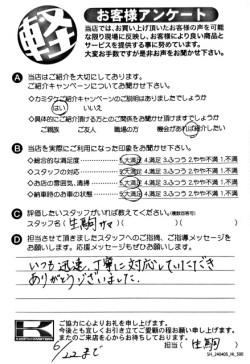 軽
お客様アンケート
当店では、お買い上げ頂いたお客様の声を可能
な限り現場に反映し、お客様により良い商品と
サービスを提供する事に努めています。
大変お手数ですが是非お声をお聞かせ下さい。
A 当店はご紹介を大切にしてあります。
ご紹介キャンペーンについてお聞かせ下さい。
◇カミタケご紹介キャンペーンのご説明はありましたでしょうか
はい いいえ
◇具体的にご紹介頂ける方とのご関係をお聞かせ頂けますでしょうか
ご親族 ご友人 職場の方 機会があれば紹介したい
B 当店を実際にご利用になった印象をお聞かせ下さい。
◇総合的な満足度 5.大満足 4.満足 3.ふつう 2.やや不満 1.不満
◇スタッフの対応 5.大満足 4.満足 3.ふつう 2.やや不満 1.不満
◇お店の雰囲気、清掃 5.大満足 4.満足 3.ふつう 2.やや不満 1.不満
◇納車時のお車の状態 5.大満足 4.満足 3.ふつう 2.やや不満 1.不満
C 評価したいスタッフがいれば教えてください。(複数回答可)
スタッフ名( 生駒サマ )( )
D 担当させて頂きましたスタッフへのご指摘、ご指導メッセージを
お願いします。応援メッセージもぜひお願いします。
いつも迅速、丁寧に対応していただき
ありがとうございました。
ご協力に心よりお礼を申し上げます。
今後とも宜しくお引き立てご愛顧の程お願い申し上げます。
またのご来店を心からお待ちしております。
6/22まで
担当( 生駒 )